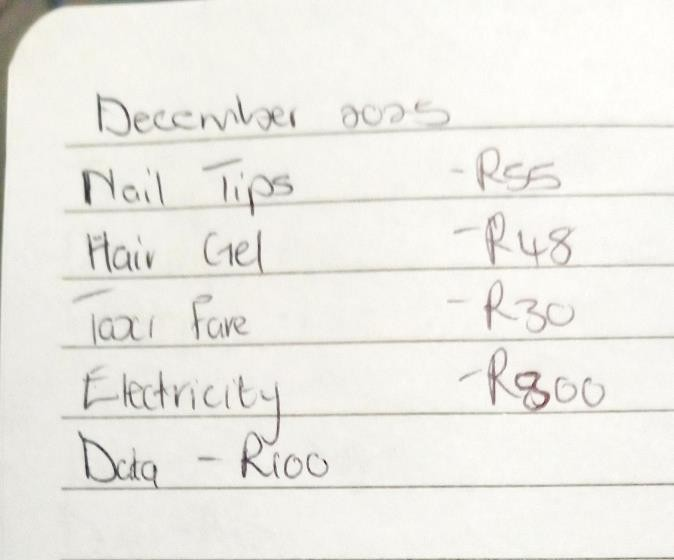 December 2025
Nail Tips - R55
Hair Gel - R48
Taxi Fare - R30
Electricity - R800
Data - R100